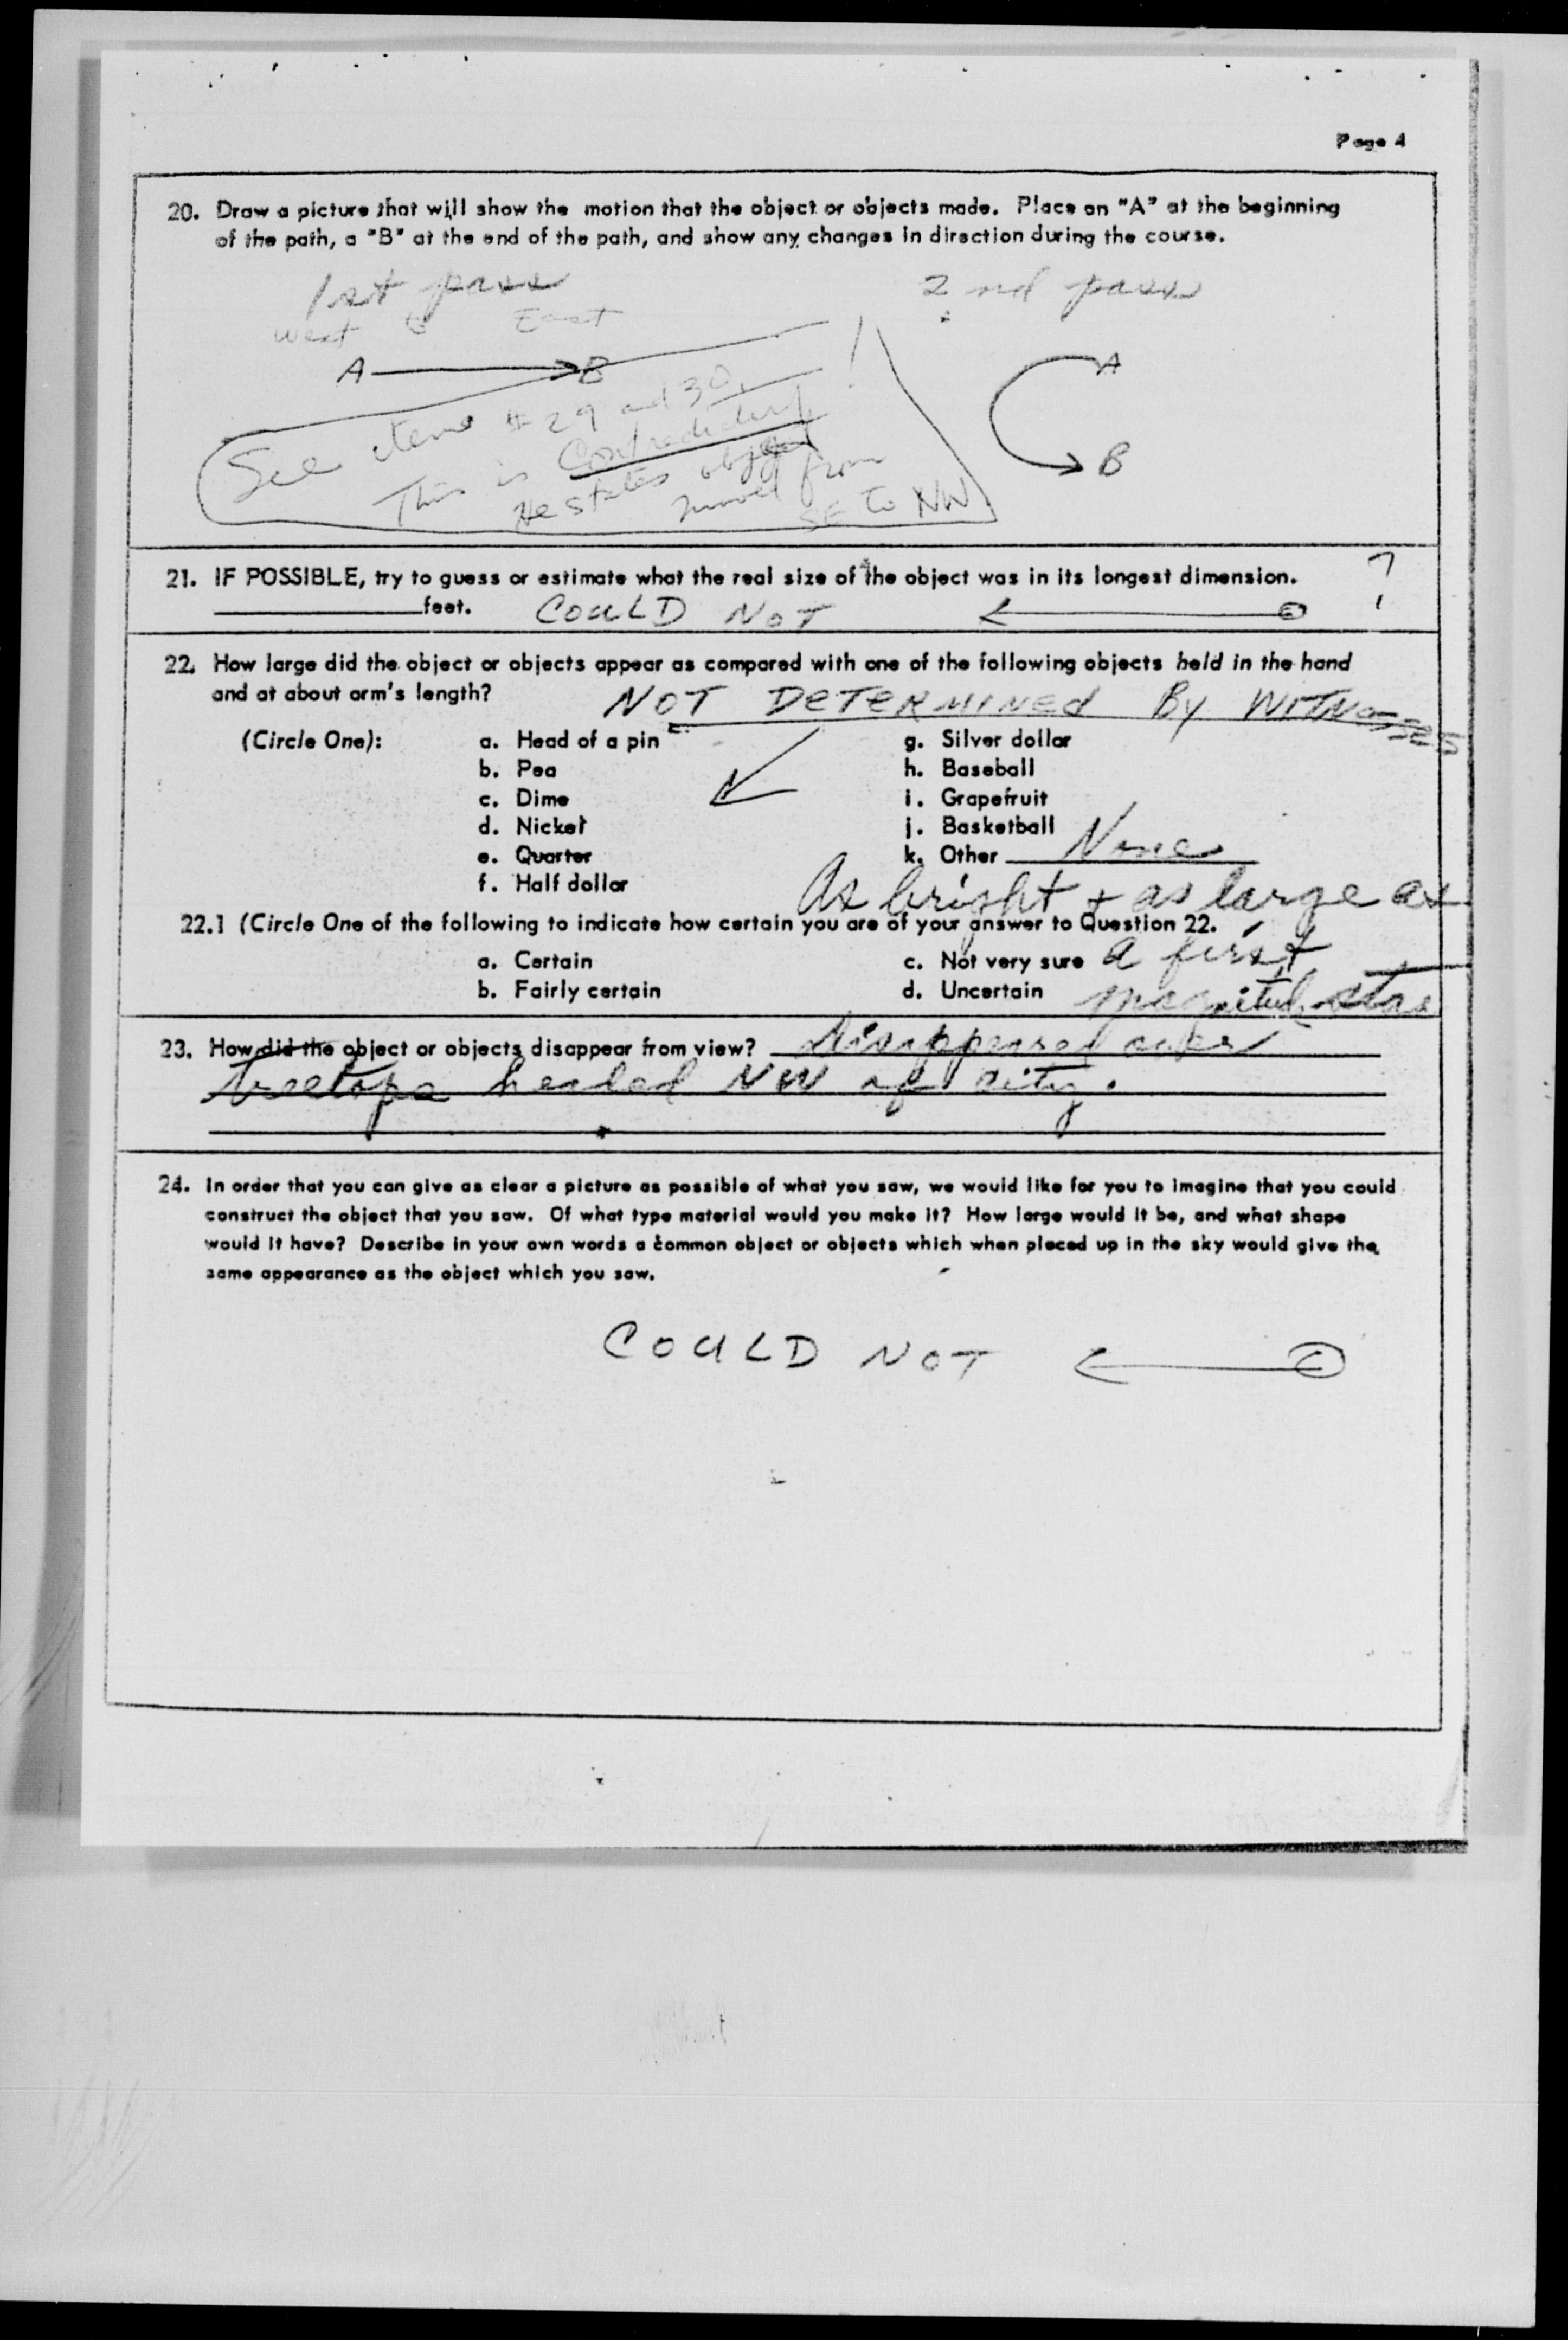 Page 4
20. Draw a picture that will show the motion that the object or objects made. Place an "A" at the beginning
of the path, a "B" at the end of the path, and show any changes in direction during the course.
1st pass
2nd pass
West to East
A B
A
B
See items # 29 and 30.
This is Contradictory!
He states object
moved from
SE to NW
21. IF POSSIBLE, try to guess or estimate what the real size of the object was in its longest dimension.
feet. COULD NOT
22. How large did the object or objects appear as compared with one of the following objects held in the hand
and at about arm's length?
NOT DETERMINED By WITNESSES
(Circle One): a. Head of a pin g. Silver dollar
b. Pea h. Baseball
c. Dime i. Grapefruit
d. Nickel j. Basketball
e. Quarter k. Other None
f. Half dollar
As bright + as large as
22.1 (Circle One of the following to indicate how certain you are of your answer to Question 22.
a. Certain c. Not very sure a first
b. Fairly certain d. Uncertain magnitude star
23. How did the object or objects disappear from view? Disappeared over
treetops headed NW of city.
24. In order that you can give as clear a picture as possible of what you saw, we would like for you to imagine that you could
construct the object that you saw. Of what type material would you make it? How large would it be, and what shape
would it have? Describe in your own words a common object or objects which when placed up in the sky would give the
same appearance as the object which you saw.
COULD NOT